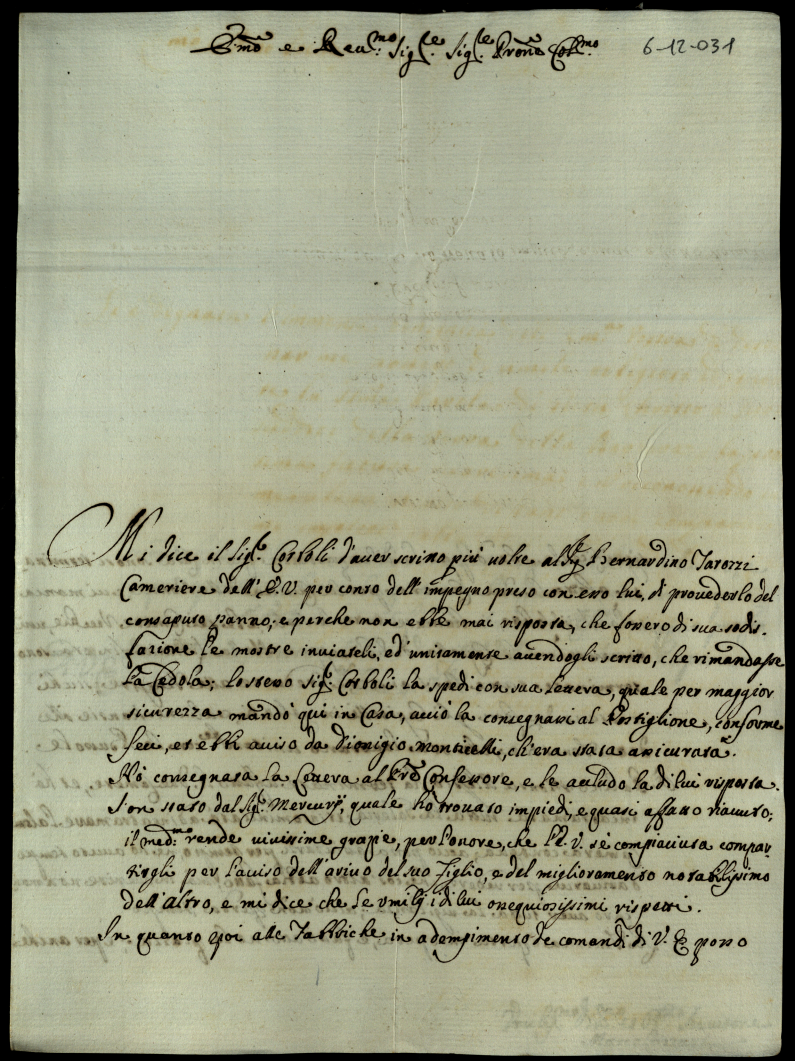 Em.mo e Reu.mo Sig.re Sig.re Prone Col.mo 6-12-031
Mi dice il Sig.r Corboli d'auer scritto più uolte al Sig.r Bernardino Tarozzi
Cameriere dell'E.V. per conto dell'impegno preso con esso lui, di prouederlo del
consaputo panno; e perche non ebbe mai risposta, che fossero di sua sodis-
fazione le mostre inuiateli, ed'unitamente auendogli scritto, che rimandasse
la Cedola; lo stesso Sig.r Corboli la spedì con sua lettera, quale per maggior
sicurezza mandò qui in Casa, acciò la consegnassi al Postiglione, conforme
feci, et ebbi auiso da Dionigio Monticelli, ch'era stata assicurata.
Hò consegnata la lettera al Pre Confessore, e le accludo la di lui risposta.
Son stato dal Sig.r Mercurij, quale hò trouato impiedi, e quasi affatto riauuto;
il med.mo rende uiuissime grazie, per l'onore, che l'E.V. s'è compiaciuta compar-
tirgli per l'auiso dell'ariuo del suo Figlio, e del miglioramento notabilissimo
dell'altro, e mi dice che le umilij i di lui ossequiosissimi rispetti.
In quanto poi alle Fabbriche in adempimento de comandi di V. E. posso